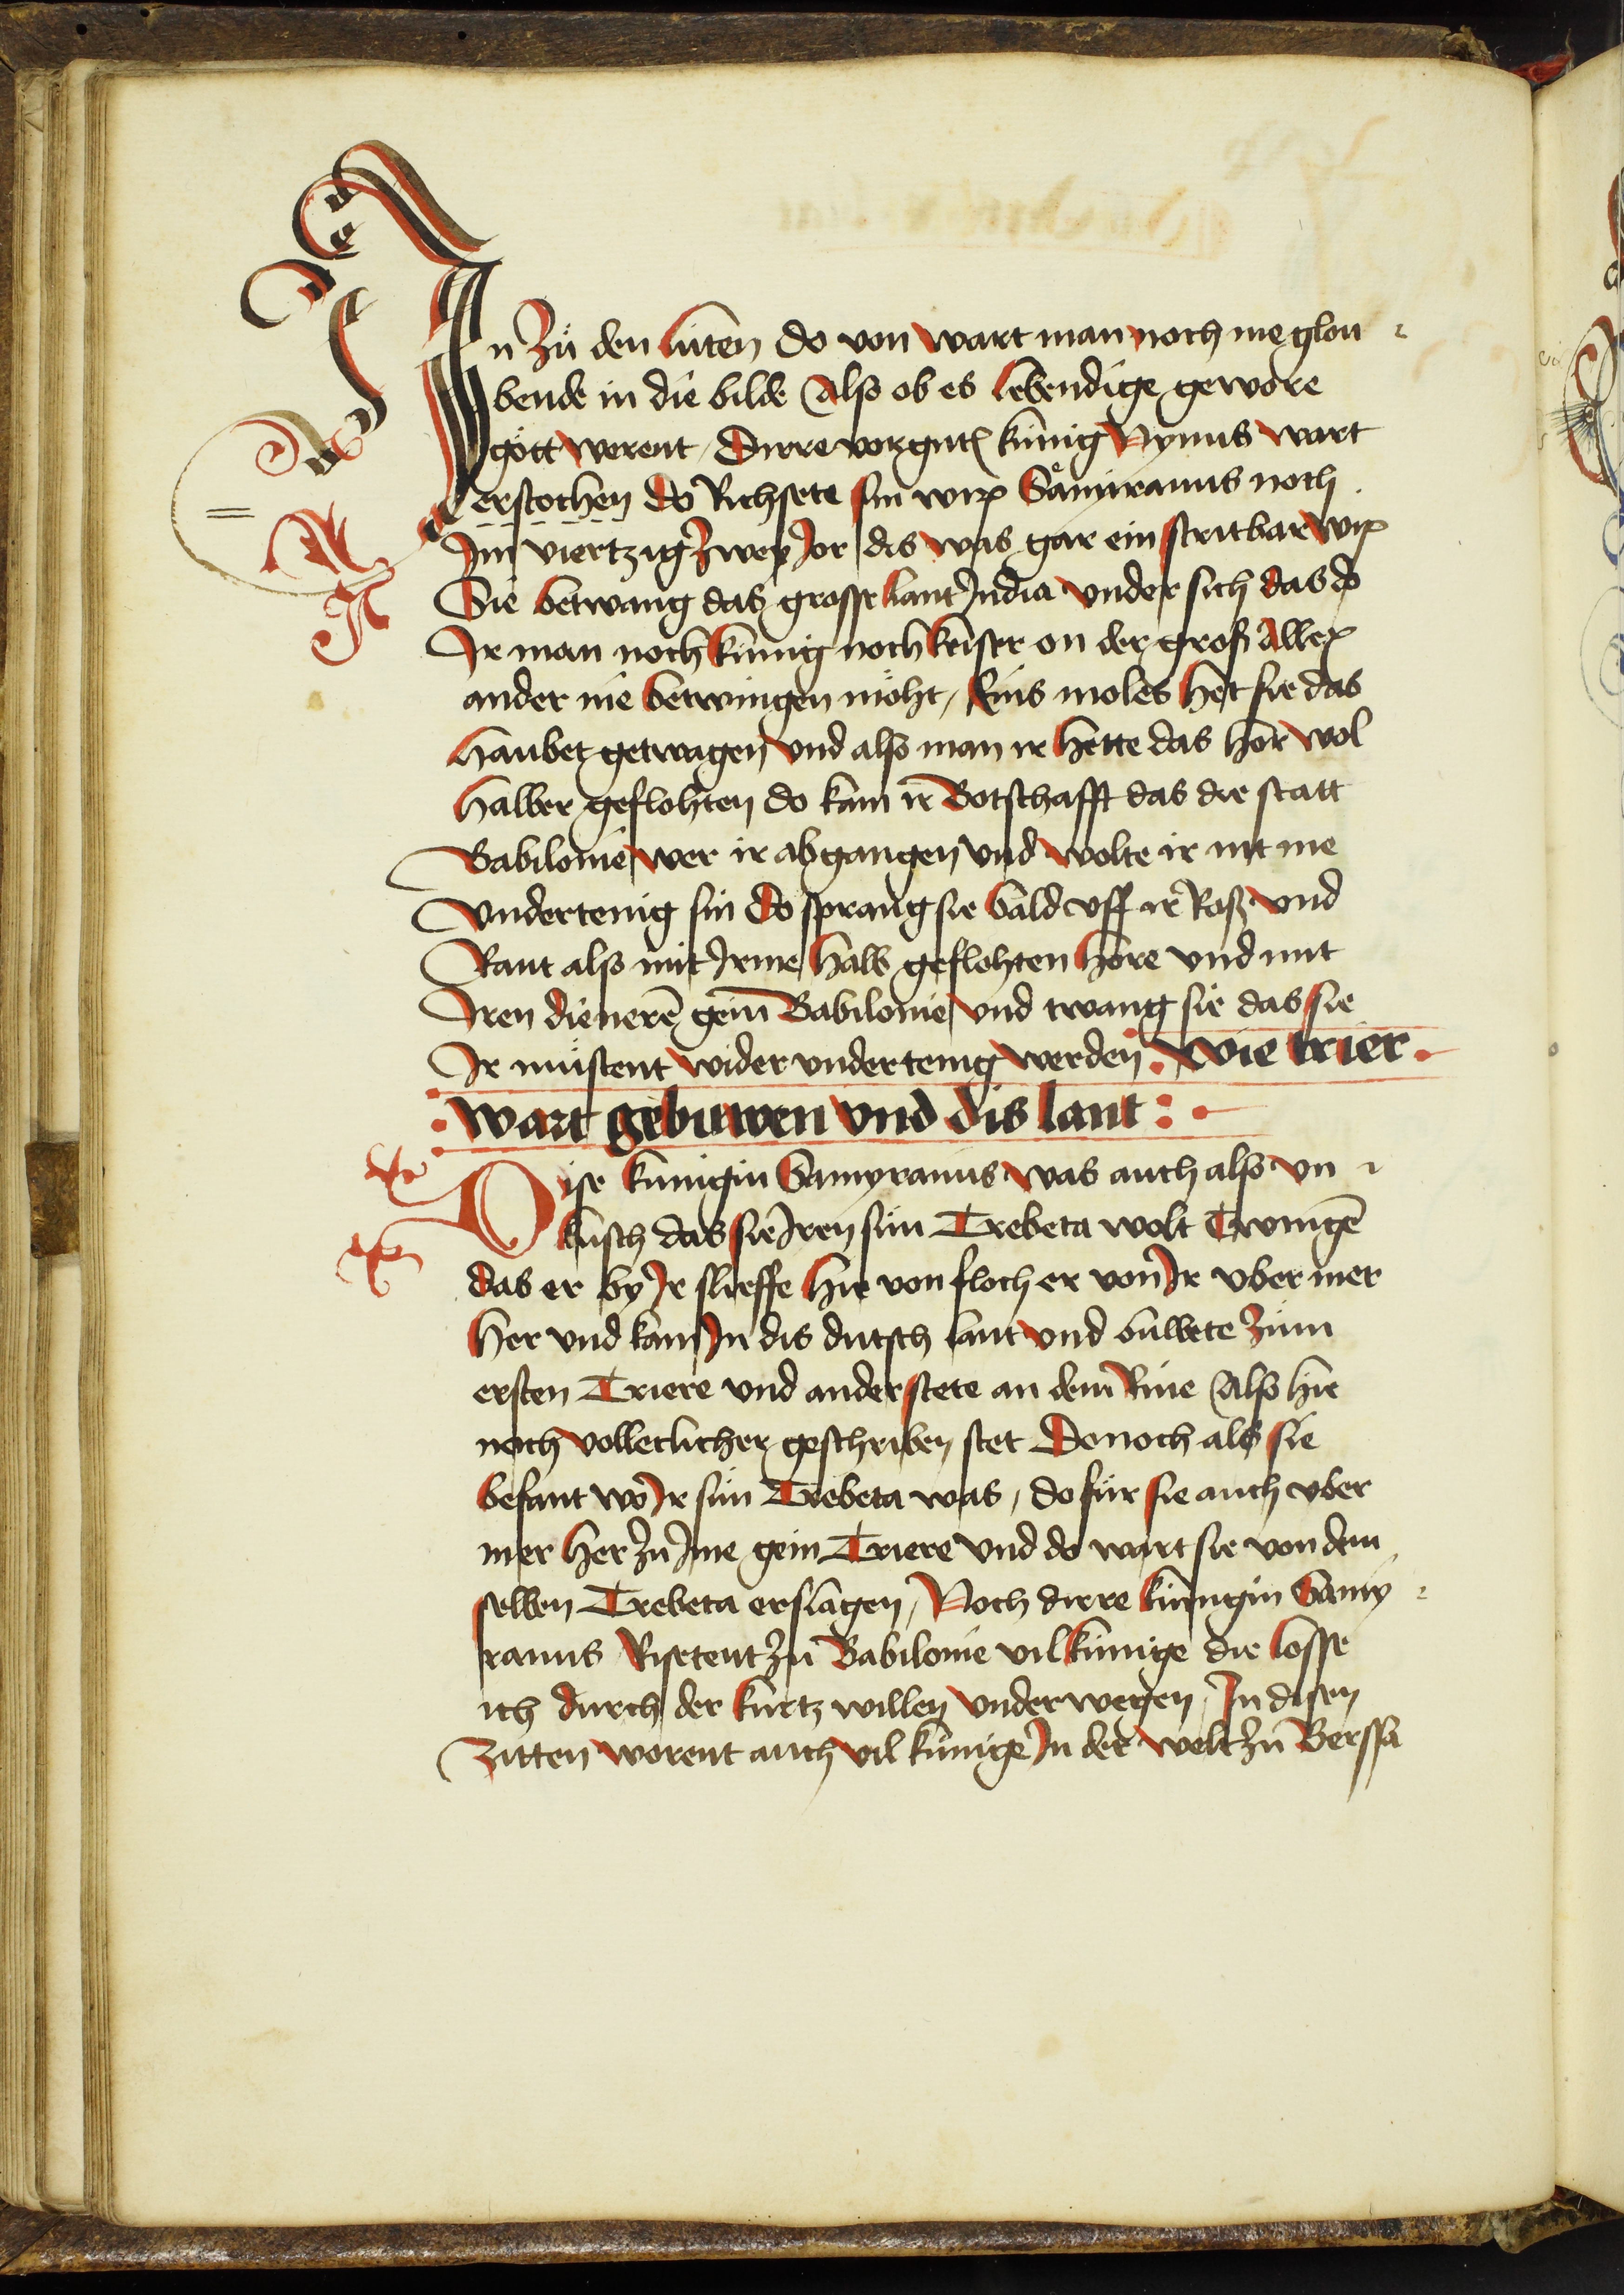 In zů den lúten do von wart man noch me glou
bende in die bilde Also ob es lebendige gewore
gött werent / Dirre vorgnt kúnig Nynus wart
erstochen do Richsete sin wip Sämiramus noch
Im viertzig zwey Jor dis was gar ein stritbar wip
Sie betwang das grosse lant India vnder sich das do
Ir man noch kúnig noch keiser on der groß Allex
ander nie betwingen möht / Eins moles het sie das
haubet getwagen vnd also man ir hette das hor wol
halber geflohten do kam ir Botschafft das die statt
Babilonie wer ir abgangen vnd wolte ir nit me
vndertenig sin do sprang sie bald vff ir Roß vnd
Rant also mit Irme halb geflohten hore vnd mit
Iren dienerē gein Babilonie vnd twang sie das sie
Ir müstent wider vndertenig werden : wie trier
: wart gebuwen vnd dis lant :
Dise kúnigin Samyramus was auch also vn
kúsch das sie Iren sún Trebeta wolt Twingē
das er by Ir slieffe hie von floch er von Ir vber mer
her vnd kam In dis dutsch lant vnd buwete zům
ersten Triere vnd ander stete an dem Rine Also hie
noch volleclicher geschriben stet Donoch als sie
befant wo Ir sún Trebeta was / do fůr sie auch vber
mer her zů Ime gein Triere vnd do wart sie von dem
selben Trebeta erslagen / Noch dirre kúnigin Samy
ramus Risetent zů Babilonie vil kúnige die losse
ich durch der kurtz willen vnder wegen / In disen
zitten worent auch vil kúnige In der welt zů Berssa